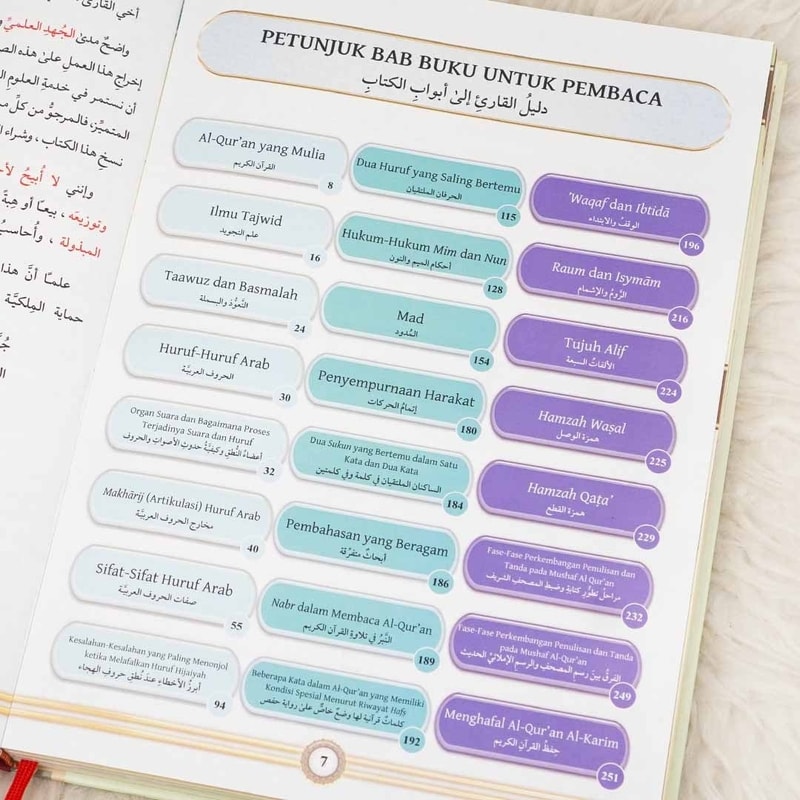 أخي القارئ
واضحٌ مدىٰ الجُهدِ العلميِّ
إخراجِ هذا العملِ علىٰ هذه
أن نستمر في خدمةِ العلومِ
المتميِّز، فالمرجوُّ من كلِّ
نسخِ هذا الكتاب، وشراء
وإنني لا أُبيحُ
وتوزيعه، بيعًا أو هبةً
المبذولة، وأُحاسبُ
علمًا أنَّ هذا
حمايةِ المِلكيَّة
PETUNJUK BAB BUKU UNTUK PEMBACA
دليلُ القارئِ إلىٰ أبوابِ الكتابِ
Al-Qur'an yang Mulia
القرآن الكريم
8
Ilmu Tajwid
علم التجويد
16
Taawuz dan Basmalah
التَّعوُّذ والبسملة
24
Huruf-Huruf Arab
الحروف العربيَّة
30
Organ Suara dan Bagaimana Proses
Terjadinya Suara dan Huruf
أعضاءُ النُّطقِ وكيفيَّةُ حدوثِ الأصواتِ والحروف
32
Makhārij (Artikulasi) Huruf Arab
مخارج الحروف العربيَّة
40
Sifat-Sifat Huruf Arab
صفات الحروف العربيَّة
55
Kesalahan-Kesalahan yang Paling Menonjol
ketika Melafalkan Huruf Hijaiyah
أبرزُ الأخطاءِ عندَ نُطقِ حروفِ الهجاء
94
Dua Huruf yang Saling Bertemu
الحرفان الملتقيان
115
Hukum-Hukum Mim dan Nun
أحكام الميم والنون
128
Mad
المُدود
154
Penyempurnaan Harakat
إتمامُ الحركات
180
Dua Sukun yang Bertemu dalam Satu
Kata dan Dua Kata
الساكنان الملتقيان في كلمة وفي كلمتين
184
Pembahasan yang Beragam
أبحاثٌ متفرِّقة
186
Nabr dalam Membaca Al-Qur'an
النَّبْرُ في تلاوةِ القرآنِ الكريم
189
Beberapa Kata dalam Al-Qur'an yang Memiliki
Kondisi Spesial Menurut Riwayat Hafs
كلماتٌ قرآنية لها وضعٌ خاصٌّ علىٰ رواية حفص
192
'Waqaf dan Ibtidā
الوقفُ والابتداء
196
Raum dan Isymām
الرَّومُ والإشمام
216
Tujuh Alif
الألفاتُ السبعة
224
Hamzah Waṣal
همزة الوصل
225
Hamzah Qaṭa'
همزة القطع
229
Fase-Fase Perkembangan Penulisan dan
Tanda pada Mushaf Al Qur'an
مراحلُ تطوُّرِ كتابةِ وضبطِ المصحفِ الشريف
232
Fase-Fase Perkembangan Penulisan dan Tanda
pada Mushaf Al-Qur'an
الفرقُ بينَ رسمِ المصحفِ والرسمِ الإملائيِّ الحديث
249
Menghafal Al-Qur'an Al-Karim
حِفظُ القرآنِ الكريم
251
7